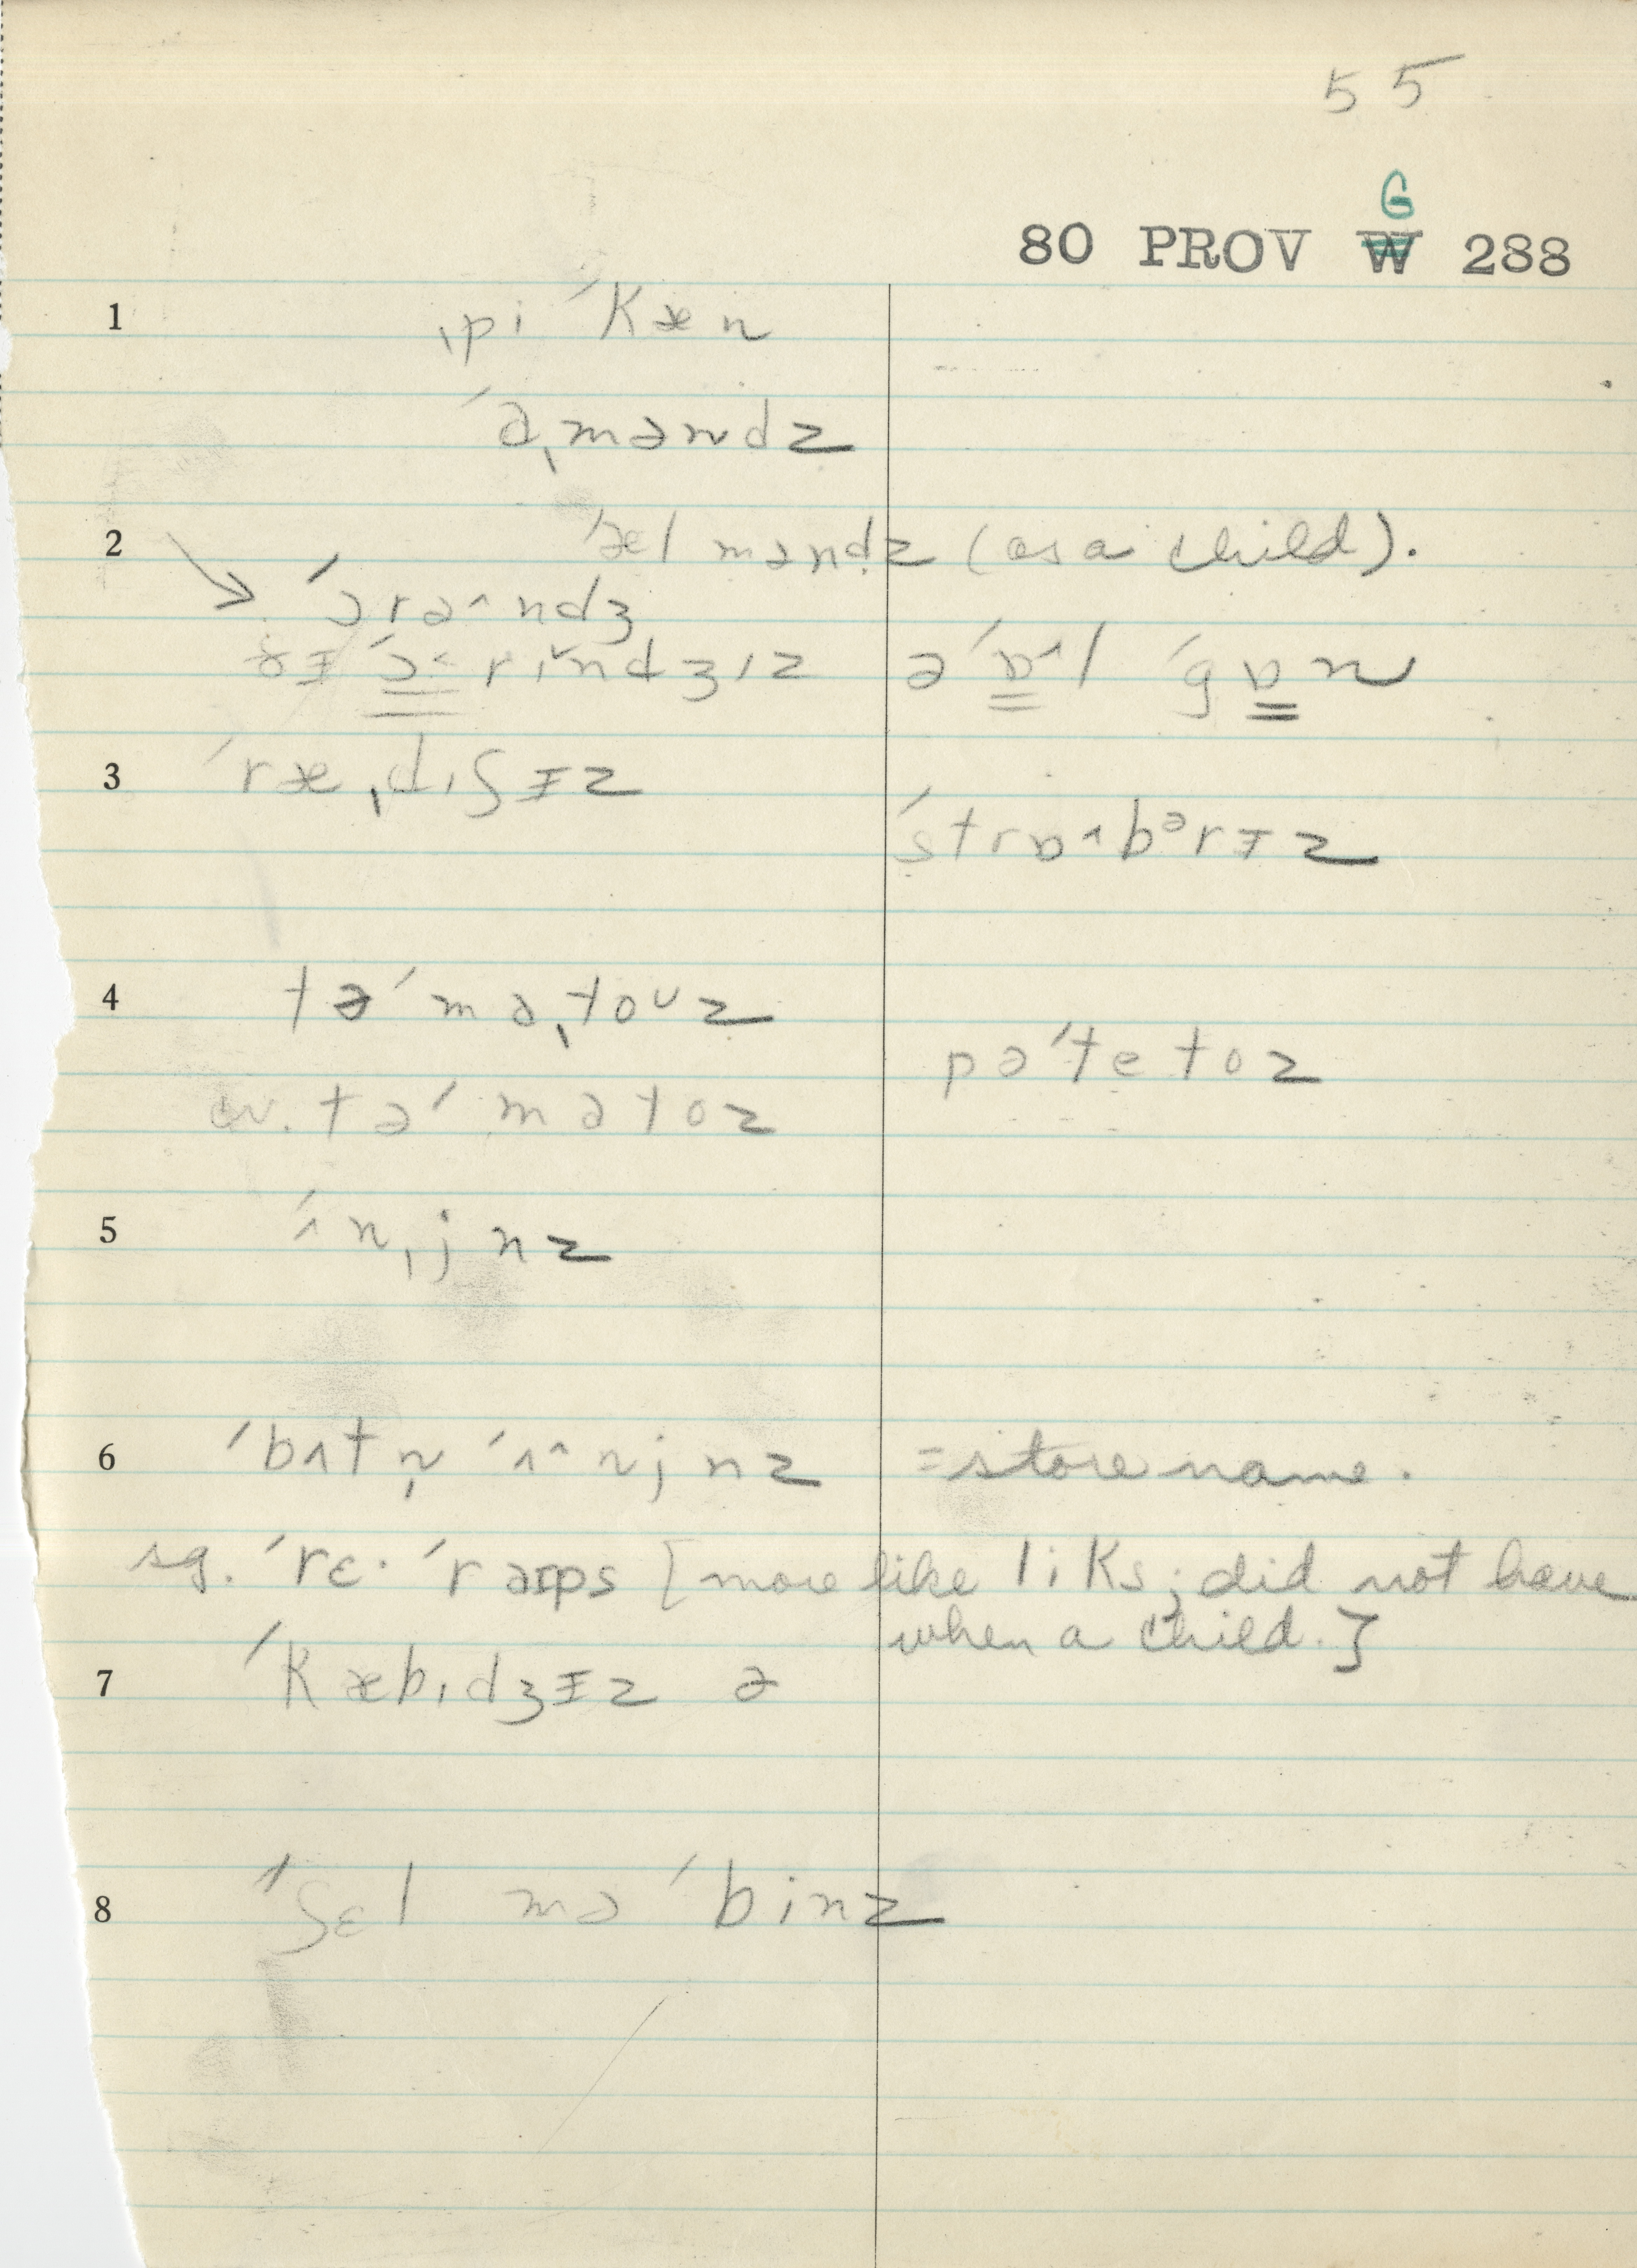 55
G
80 PROV W 288
1 ˌpi ˈkæn
ˈɑˌməndz
2 ˈælməndz (as a child).
ˈɔrə^ndʒ
ðɪ ˈɔ˂rɪ̌ndʒɪz əˈɒ^l ˈgɒn
3 ˈræˌdɪʃɪz
ˈstrɒ^bᵊrɪz
4 təˈmɑˌtoᴜz
pəˈtetoz
cv. təˈmɑtoz
5 ˈʌnˌjnz
6 ˈbʌtn̩ ˈʌ^njnz = store name.
sg. ˈrɛ· ˈraɪps [more like liks; did not have
when a child.]
7 ˈkæbɪdʒɪz ə
8 ˈʃɛl mə ˈbinz